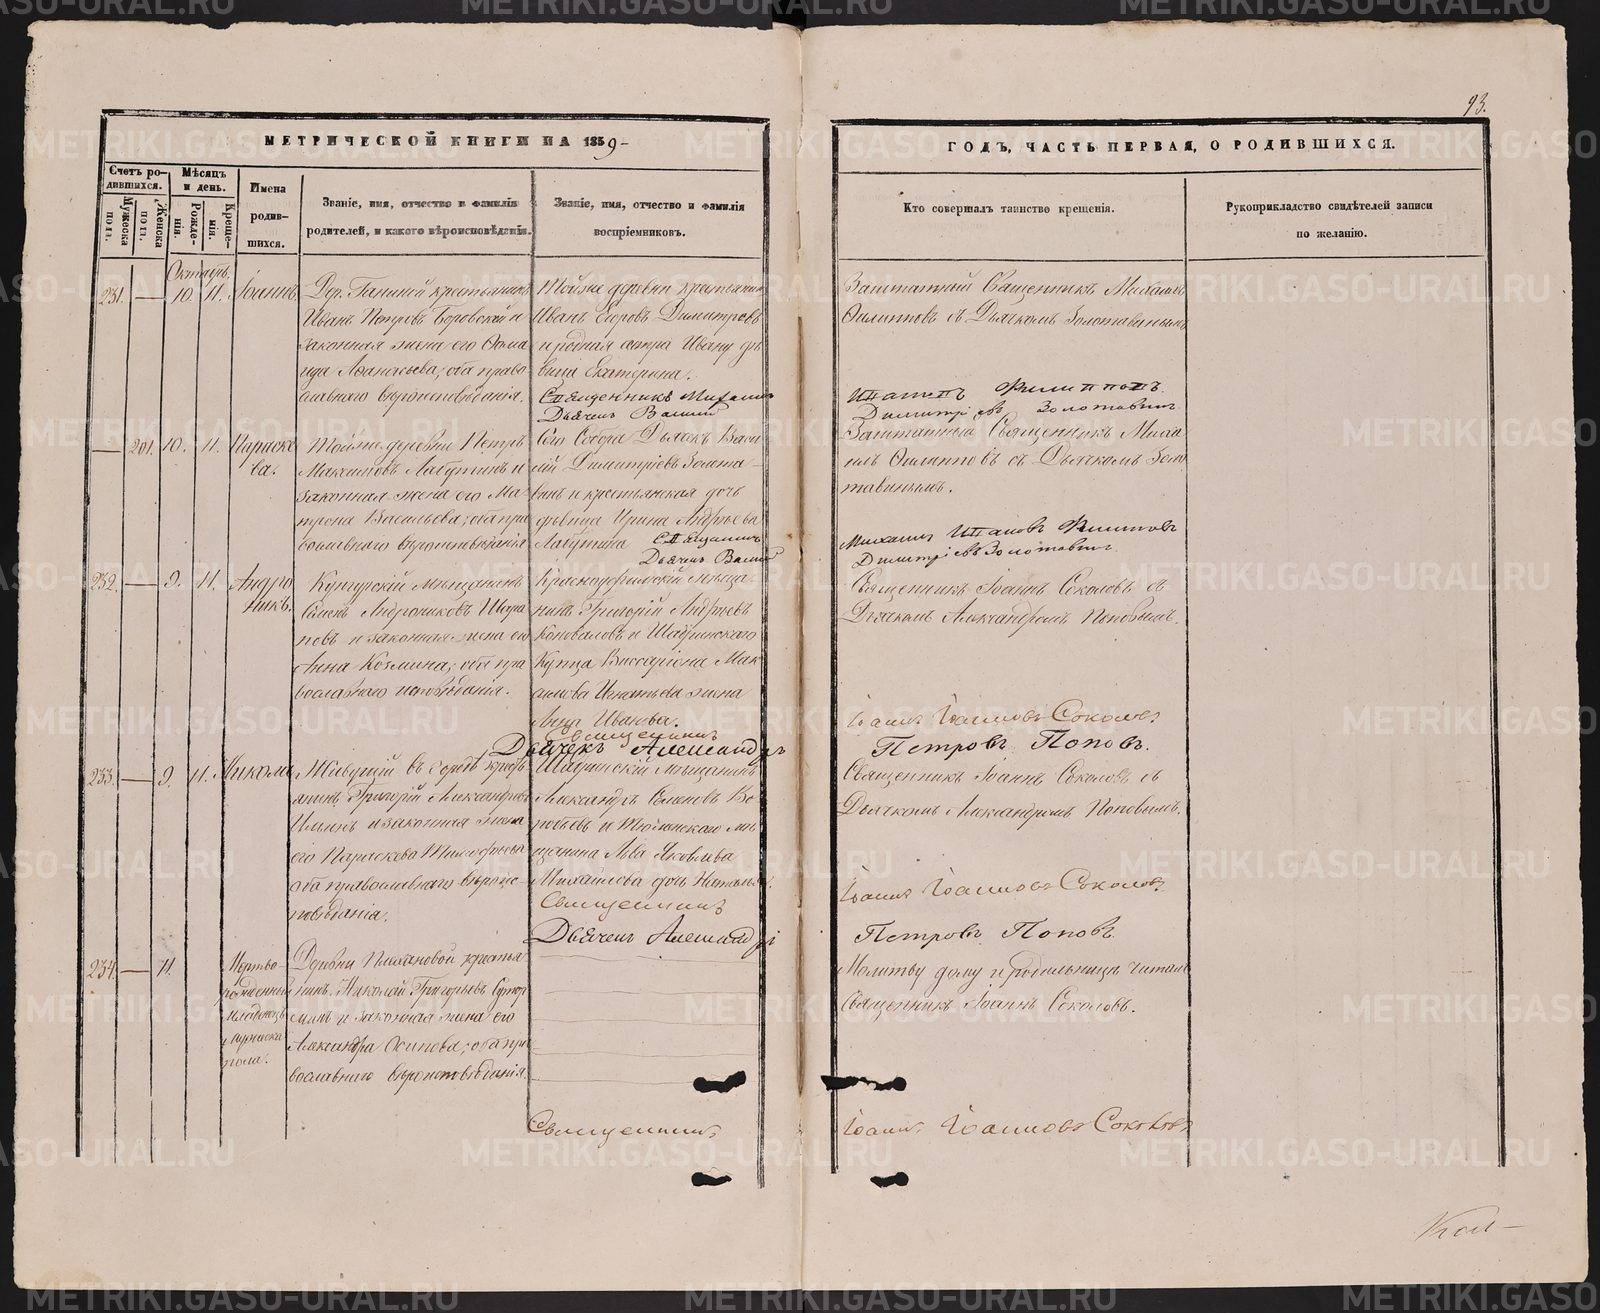 93.
МЕТРИЧЕСКОЙ КНИГИ НА 1859
ГОДЪ, ЧАСТЬ ПЕРВАЯ, О РОДИВШИХСЯ.
Счетъ родившихся.
Мужеска полъ.
Женска полъ.
Мѣсяцъ и день.
Рожденія.
Крещенія.
Имена
родив-
шихся.
Званіе, имя, отчество и фамилія
родителей, и какого вѣроисповѣданія.
Званіе, имя, отчество и фамилія
воспріемниковъ.
Кто совершалъ таинство крещенія.
Рукоприкладство свидѣтелей записи
по желанію.
Октябрь.
231. — 10. 11. Іоаннъ
Дер. крестьянинъ
Иванъ Петровъ Боровской и
законная жена его Дома-
Аѳанасьева; оба право-
славнаго вѣроисповѣданія.
Тойже деревни крестьянин
Иванъ Егоровъ Димитріевъ
и родная сестра Ивану дѣ-
вица Екатерина.
Священникъ Михаилъ
Дьячекъ Василий
Заштатный Священникъ Михаилъ
Филипповъ съ Дьячкомъ Золотавинымъ
Ипатовъ Филипповъ
Димитріевъ Золотавинъ
— 201. 10. 11. Параске-
ва.
Тойже деревни Петръ
Максимовъ Лабутинъ и
законная жена его Ма-
трона Васильева; оба пра-
вославнаго вѣроисповѣданія
Сего Собора Дьячекъ Васи-
лій Димитріевъ Золота-
винъ и крестьянская дочь
дѣвица Ирина Андреева
Лабутина Священникъ
Дьячекъ Василий
Заштатный Священникъ Миха-
илъ Филипповъ съ Дьячкомъ Золо-
тавинымъ.
Михаилъ Ипатовъ Филипповъ
Димитріевъ Золотавинъ.
232. — 9. 11. Андро-
никъ.
Кунгурскій мѣщанинъ
Семенъ Андрониковъ
и законная жена его
Анна Козмина; оба пра-
вославнаго исповѣданія.
Красноуфимскій мѣща-
нинъ Григорій Андреевъ
Коноваловъ и Шадринскаго
Купца Виссаріона Мак-
симова Игнатьева жена
Анна Иванова.
Священникъ
Дьячекъ Александръ
Священникъ Іоаннъ Соколовъ съ
Дьячкомъ Александромъ Поповымъ.
Іоаннъ Іоанновъ Соколовъ
Петровъ Поповъ.
233. — 9. 11.
Живущій въ городѣ кресть-
янинъ Григорій Александровъ
Ильинъ и законная жена
его Параскева Тимофеева
оба православнаго вѣроис-
повѣданія.
Шадринскій мѣщанинъ
Александръ Семеновъ Во-
робьевъ и Тюменскаго мѣ-
щанина Льва Яковлева
Михайлова дочь Наталья.
Священникъ
Дьячекъ Александръ
Священникъ Іоаннъ Соколовъ съ
Дьячкомъ Александромъ Поповымъ.
Іоаннъ Іоанновъ Соколовъ.
Петровъ Поповъ.
234. — 11. Мертво-
рожденный
младенецъ
мужеска
пола.
Деревни Плехановой кресть-
янинъ Николай Григорьевъ
и законная жена его
Александра Осипова; оба пра-
вославнаго вѣроисповѣданія.
Священникъ
Молитву дому и родильницѣ читалъ
Священникъ Іоаннъ Соколовъ.
Іоаннъ Іоанновъ Соколовъ
METRIKI.GASO-URAL.RU